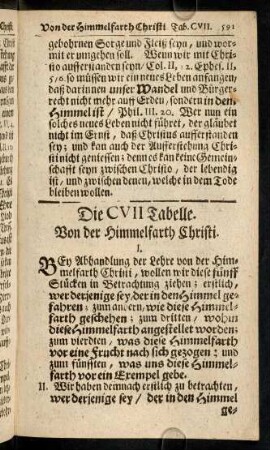 Von der Himmelfarth Christi Tab. CVII. 591
gebohrnen Sorge und Fleiß seyn, und wor-
mit er umgehen soll. Wenn wir mit Chri-
sto aufferstanden seyn/Col. II, 12. Ephes. II,
5/6. so müssen wir ein neues Leben anfangen,
daß darinnen unser Wandel und Bürge-
recht nicht mehr auff Erden, sondern in dem
Himmel ist / Phil. III. 20. Wer nun ein
solches neues Leben nicht führet, der gläubet
nicht im Ernst, daß Christus aufferstanden
sey; und kan auch der Aufferstehung Chri-
sti nicht geniessen; denn es kan keine Gemein-
schafft seyn zwischen Christo, der lebendig
ist, und zwischen denen, welche in dem Tode
bleiben wollen.
Die CVII Tabelle.
Von der Himmelfarth Christi.
I.
BEy Abhandlung der Lehre von der Him-
melfarth Christi, wollen wir diese fünff
Stücken in Betrachtung ziehen; erstlich,
wer derjenige sey, der in den Himmel ge-
fahren; zum andern, wie diese Himmel-
farth geschehen; zum dritten, wohin
diese Himmelfarth angestellet worden;
zum vierdten, was diese Himmelfarth
vor eine Frucht nach sich gezogen: und
zum fünfften, was uns diese Himmel-
farth vor ein Exempel gebe.
II. Wir haben demnach erstlich zu betrachten,
wer derjenige sey / der in den Himmel
ge-